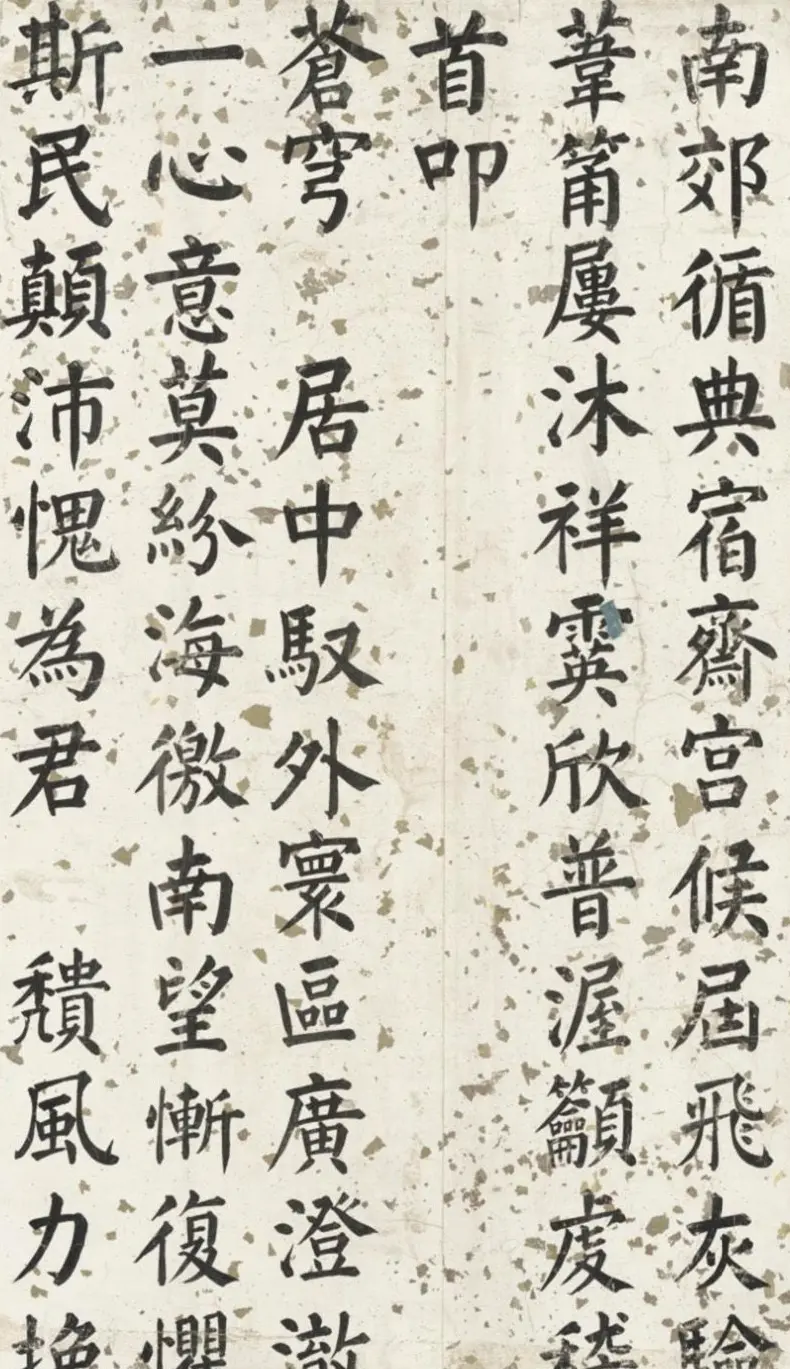 南郊循典宿齋宮候屆飛灰
葦籥屢沐祥霙欣普渥籲虔稽
首叩
蒼穹 居中馭外寰區廣澄澈
一心意莫紛海徼南望慚復懼
斯民顛沛愧為君 穨風力挽